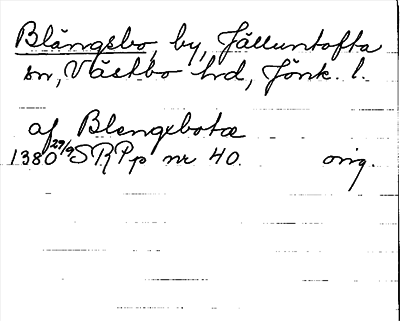 Blängsbo, by, Jälluntofta
sn, Västbo hd, Jönk. l.
af Blengxbotæ
1380 27/9 SRPp nr 40. orig.